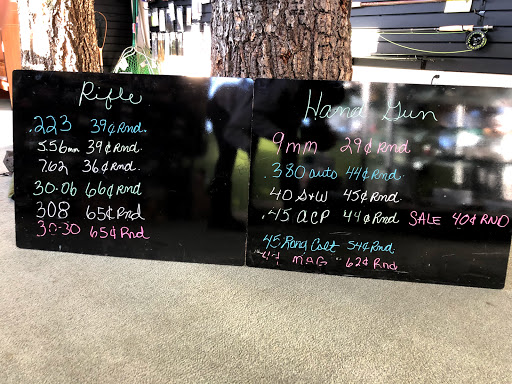 Rifle
.223 39¢ Rnd.
5.56mm 39¢ Rnd.
7.62 36¢ Rnd.
30.06 66¢ Rnd
308 65¢ Rnd.
30-30 65¢ Rnd
Hand Gun
9mm 29¢ Rnd
.380 auto 44¢ Rnd.
.40 S&W 45¢ Rnd.
.45 ACP 44¢ Rnd SALE 40¢ RND
45 Long Colt 54¢ Rnd.
44 MAG 62¢ Rnd